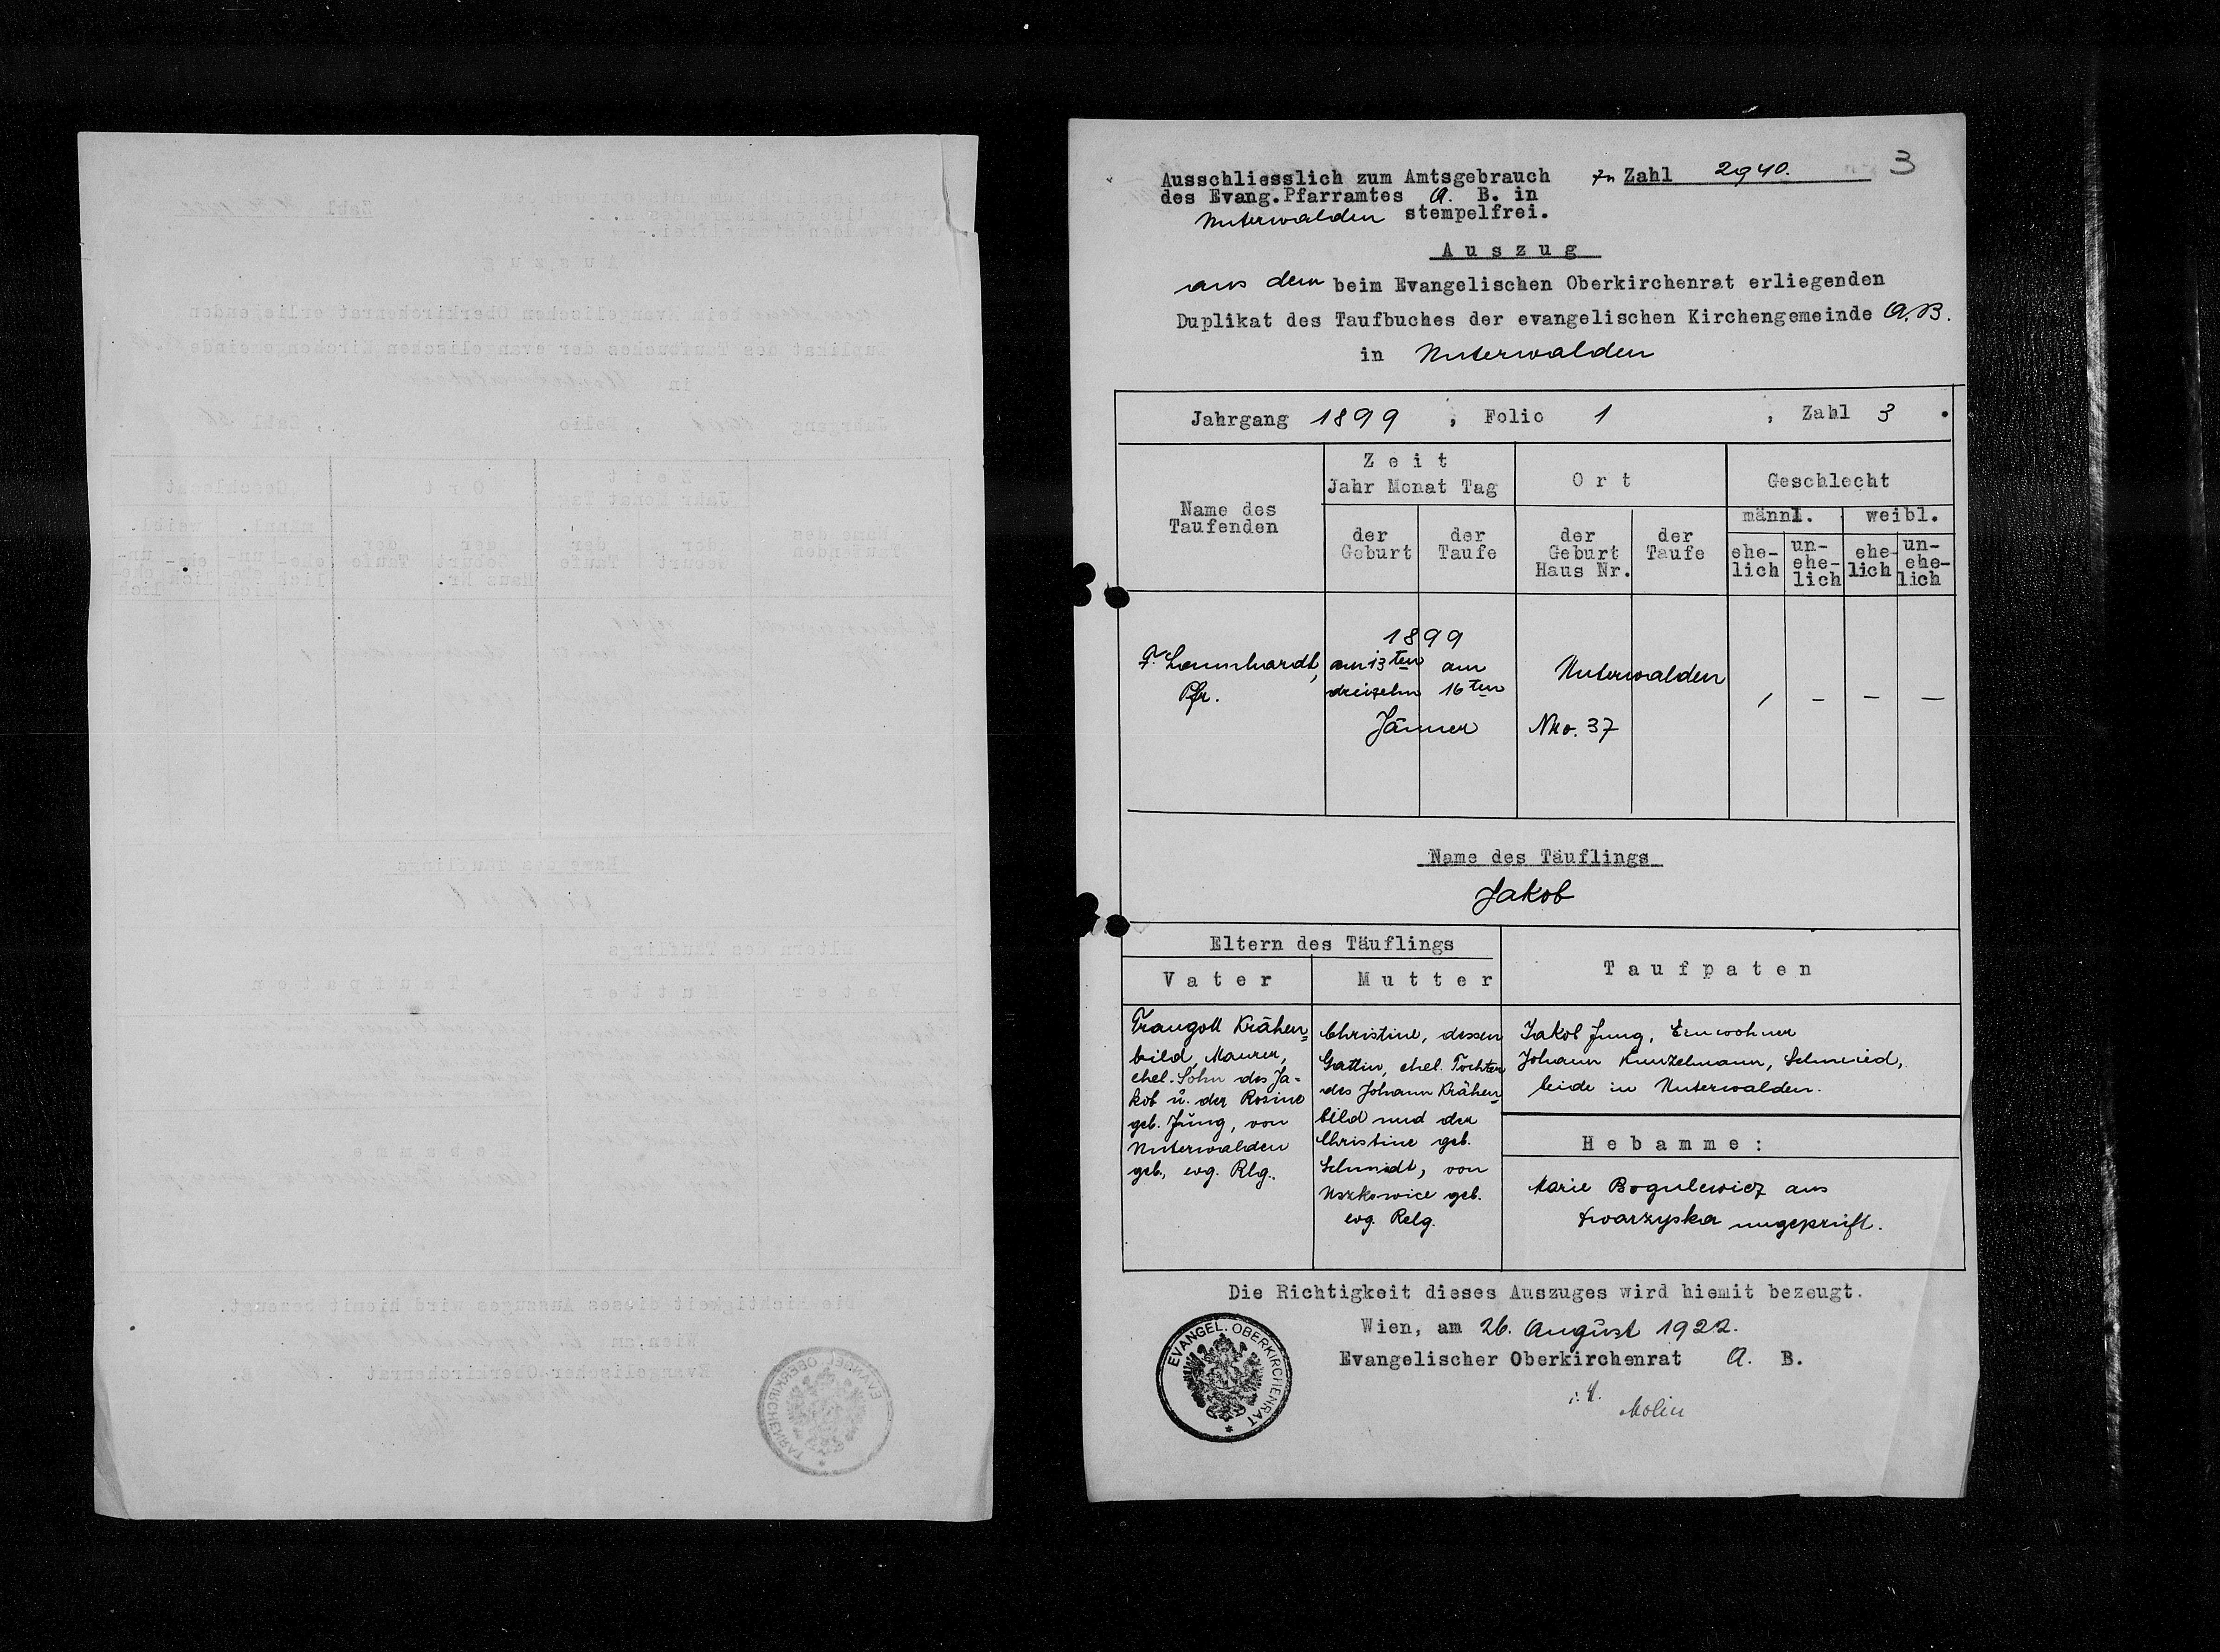 3
Ausschliesslich zum Amtsgebrauch zu Zahl 2940.
des Evang.Pfarramtes A. B. in
Unterwalden stempelfrei.
Auszug
aus dem beim Evangelischen Oberkirchenrat erliegenden
Duplikat des Taufbuches der evangelischen Kirchengemeinde A.B.
in Unterwalden
Jahrgang 1899 , Folio 1 , Zahl 3 .
Name des
Taufenden
Zeit
Jahr Monat Tag
der
Geburt
der
Taufe
Ort
der
Geburt
Haus Nr.
der
Taufe
Geschlecht
männl.
weibl.
ehe-
lich
un-
ehe-
lich
ehe-
lich
un-
ehe-
lich
1899
F. Lamnhardt, am 13ten am Unterwalden
Pfr. dreizehn 16ten / – – –
Jänner Nro. 37
Name des Täuflings
Jakob
Eltern des Täuflings
Vater
Mutter
Taufpaten
Traugott Krähen=
bild, Maurer,
ehel. Sohn des Ja=
kob u. der Rosine
geb. Jung, von
Unterwalden
geb., evg. Rlg.
Christine, dessen
Gattin, ehel. Tochter
des Johann Krähen=
bild und der
Christine geb.
Schmidt, von
Uszkowice geb.
evg. Relg.
Jakob Jung, Einwohner
Johann Kunzelmann, Schmied,
beide in Unterwalden.
Hebamme:
Marie Bogulewicz aus
ungeprüft.
Die Richtigkeit dieses Auszuges wird hiemit bezeugt.
Wien, am 26. August 1922.
Evangelischer Oberkirchenrat A. B.
EVANGEL. OBERKIRCHENRAT *